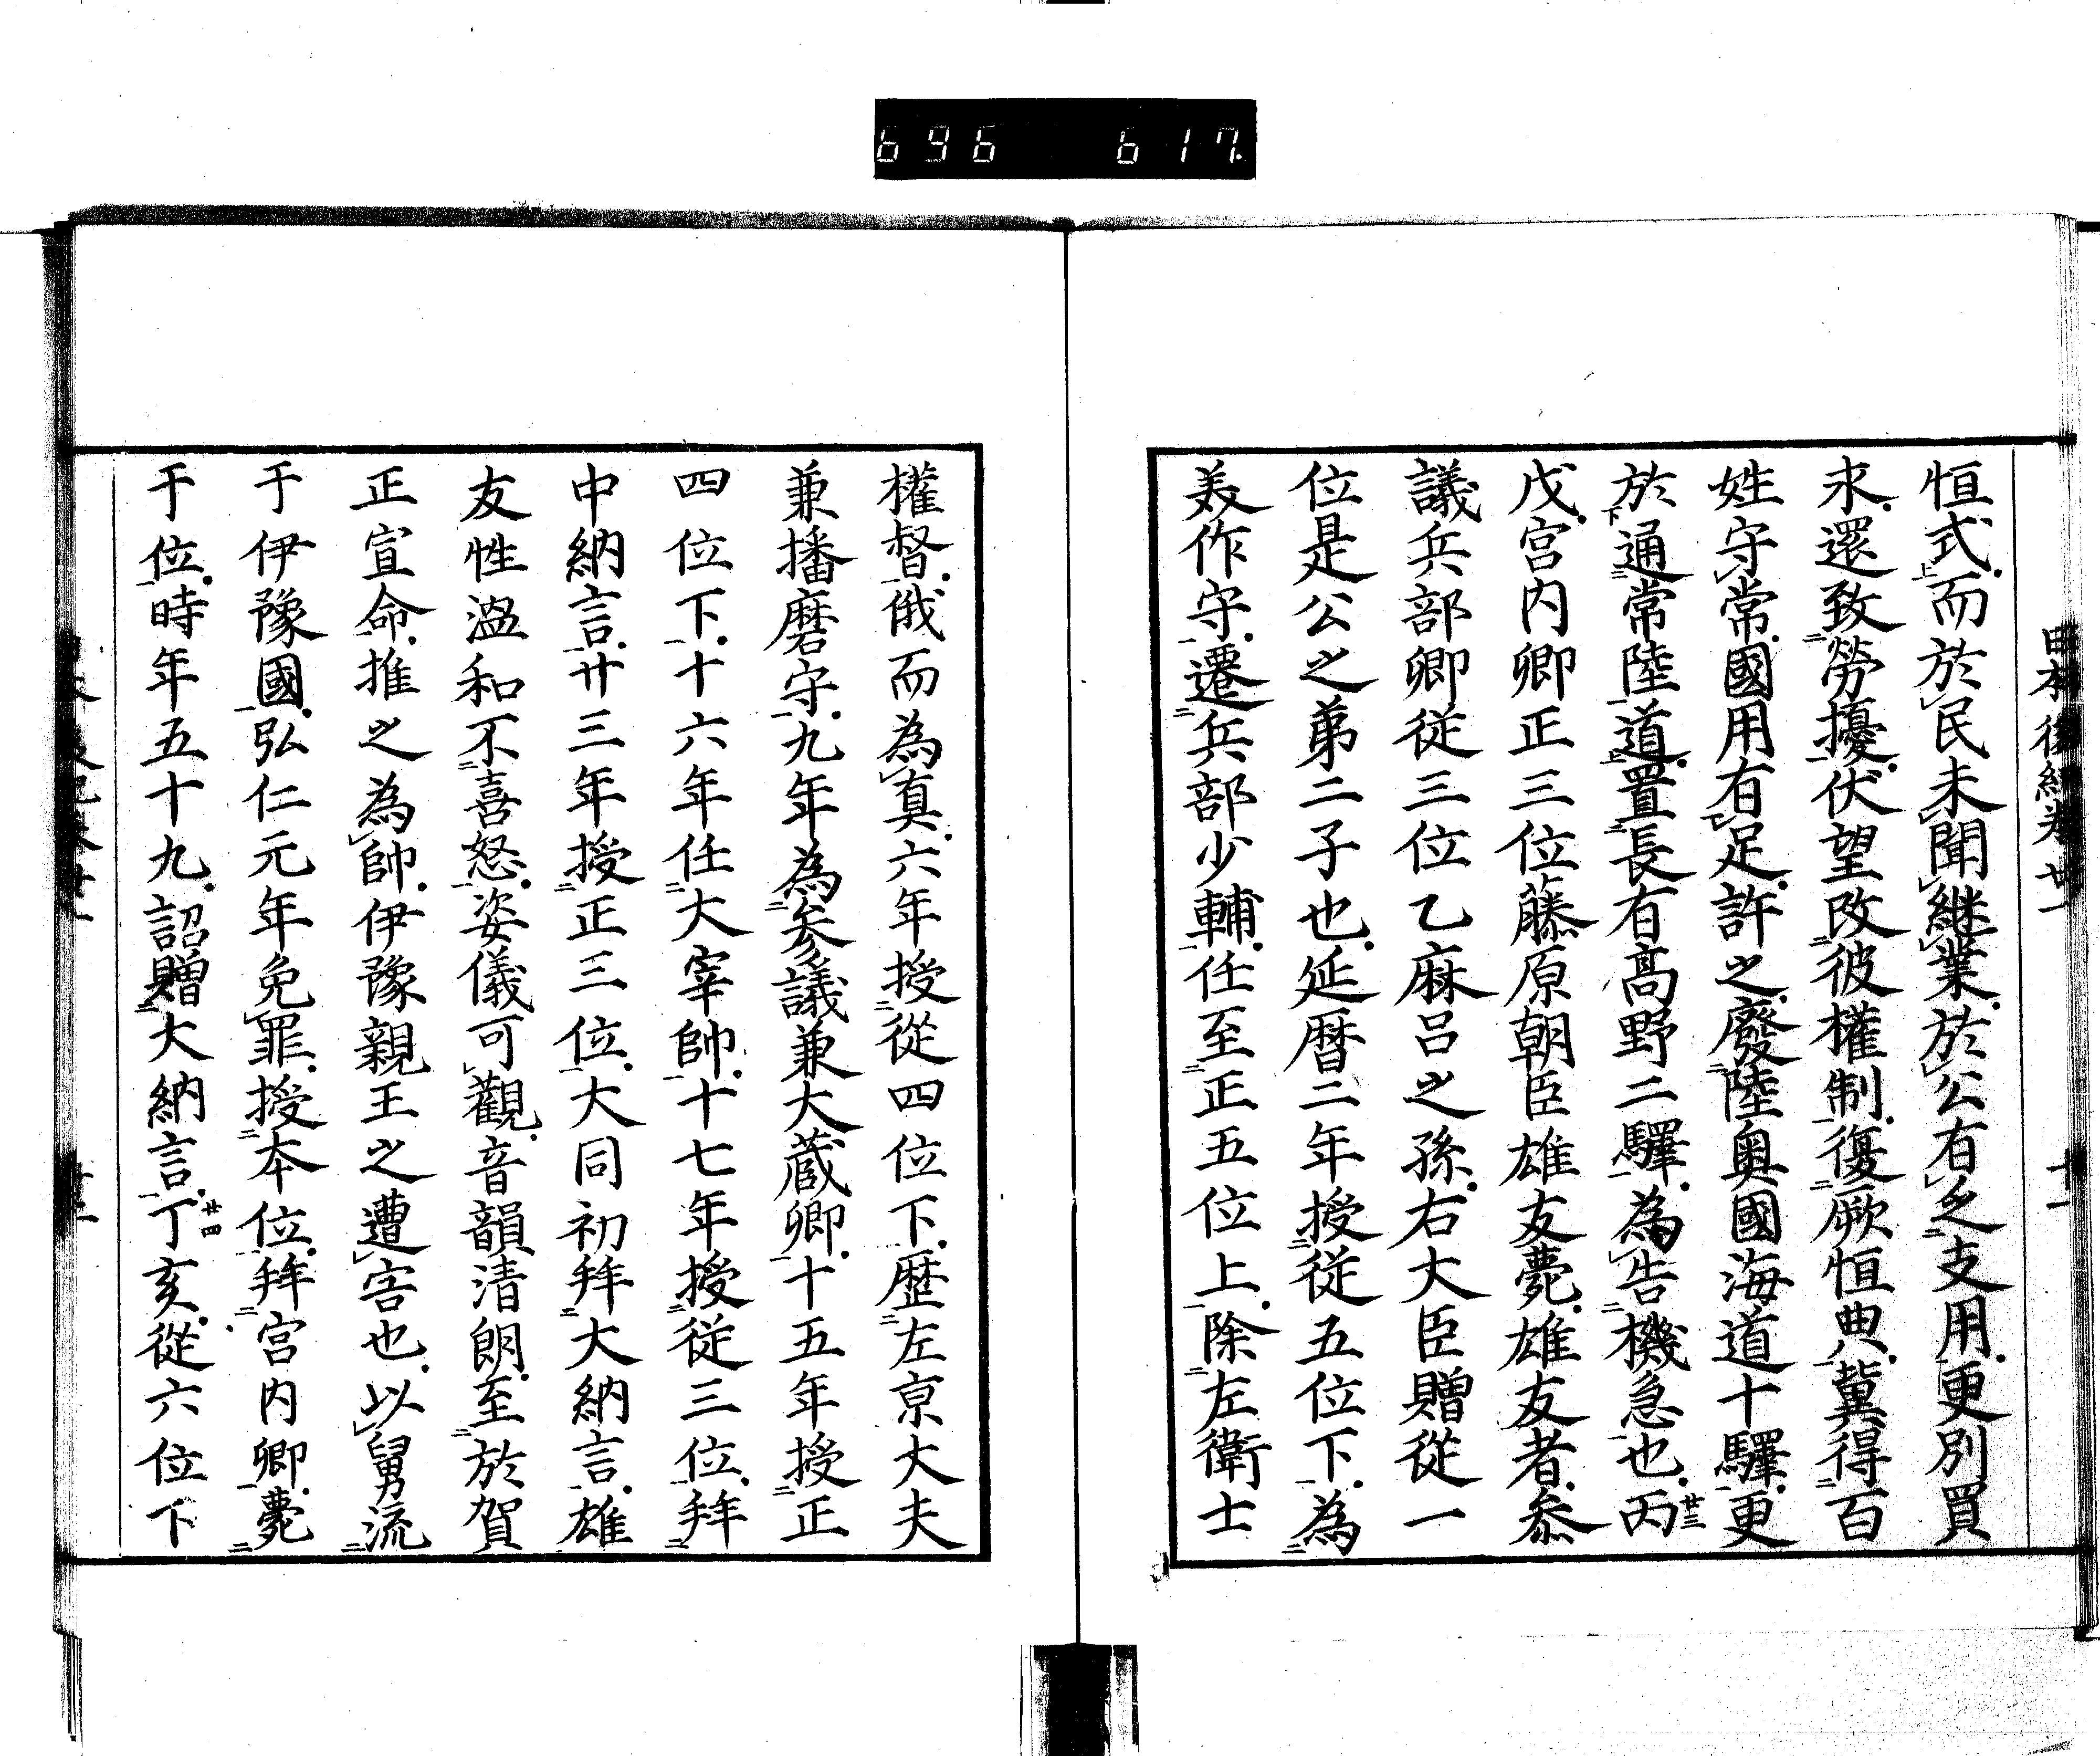 696 617
日本後紀卷廿一 十一
恒式而於民未聞継業於公有乏支用更別買
求還致勞擾伏望改彼權制復厥恒典冀得百
姓守常國用有足許之廢陸奥國海道十驛更
於通常陸道置長有高野二驛為告機急也丙廿三
戌宮内卿正三位藤原朝臣雄友薨雄友者参
議兵部卿従三位乙麻呂之孫右大臣贈従一
位是公之弟二子也延暦二年授従五位下為
美作守遷兵部少輔任至正五位上除左衛士
權督俄而為真六年授從四位下歴左京大夫
兼播磨守九年為参議兼大蔵卿十五年授正
四位下十六年任大宰帥十七年授従三位拜
中納言廿三年授正三位大同初拜大納言雄
友性温和不喜怒姿儀可觀音韻清朗至於賀
正宣命推之為帥伊豫親王之遭害也以舅流
于伊豫國弘仁元年免罪授本位拜宮内卿薨
于位時年五十九詔贈大納言丁廿四亥從六位下